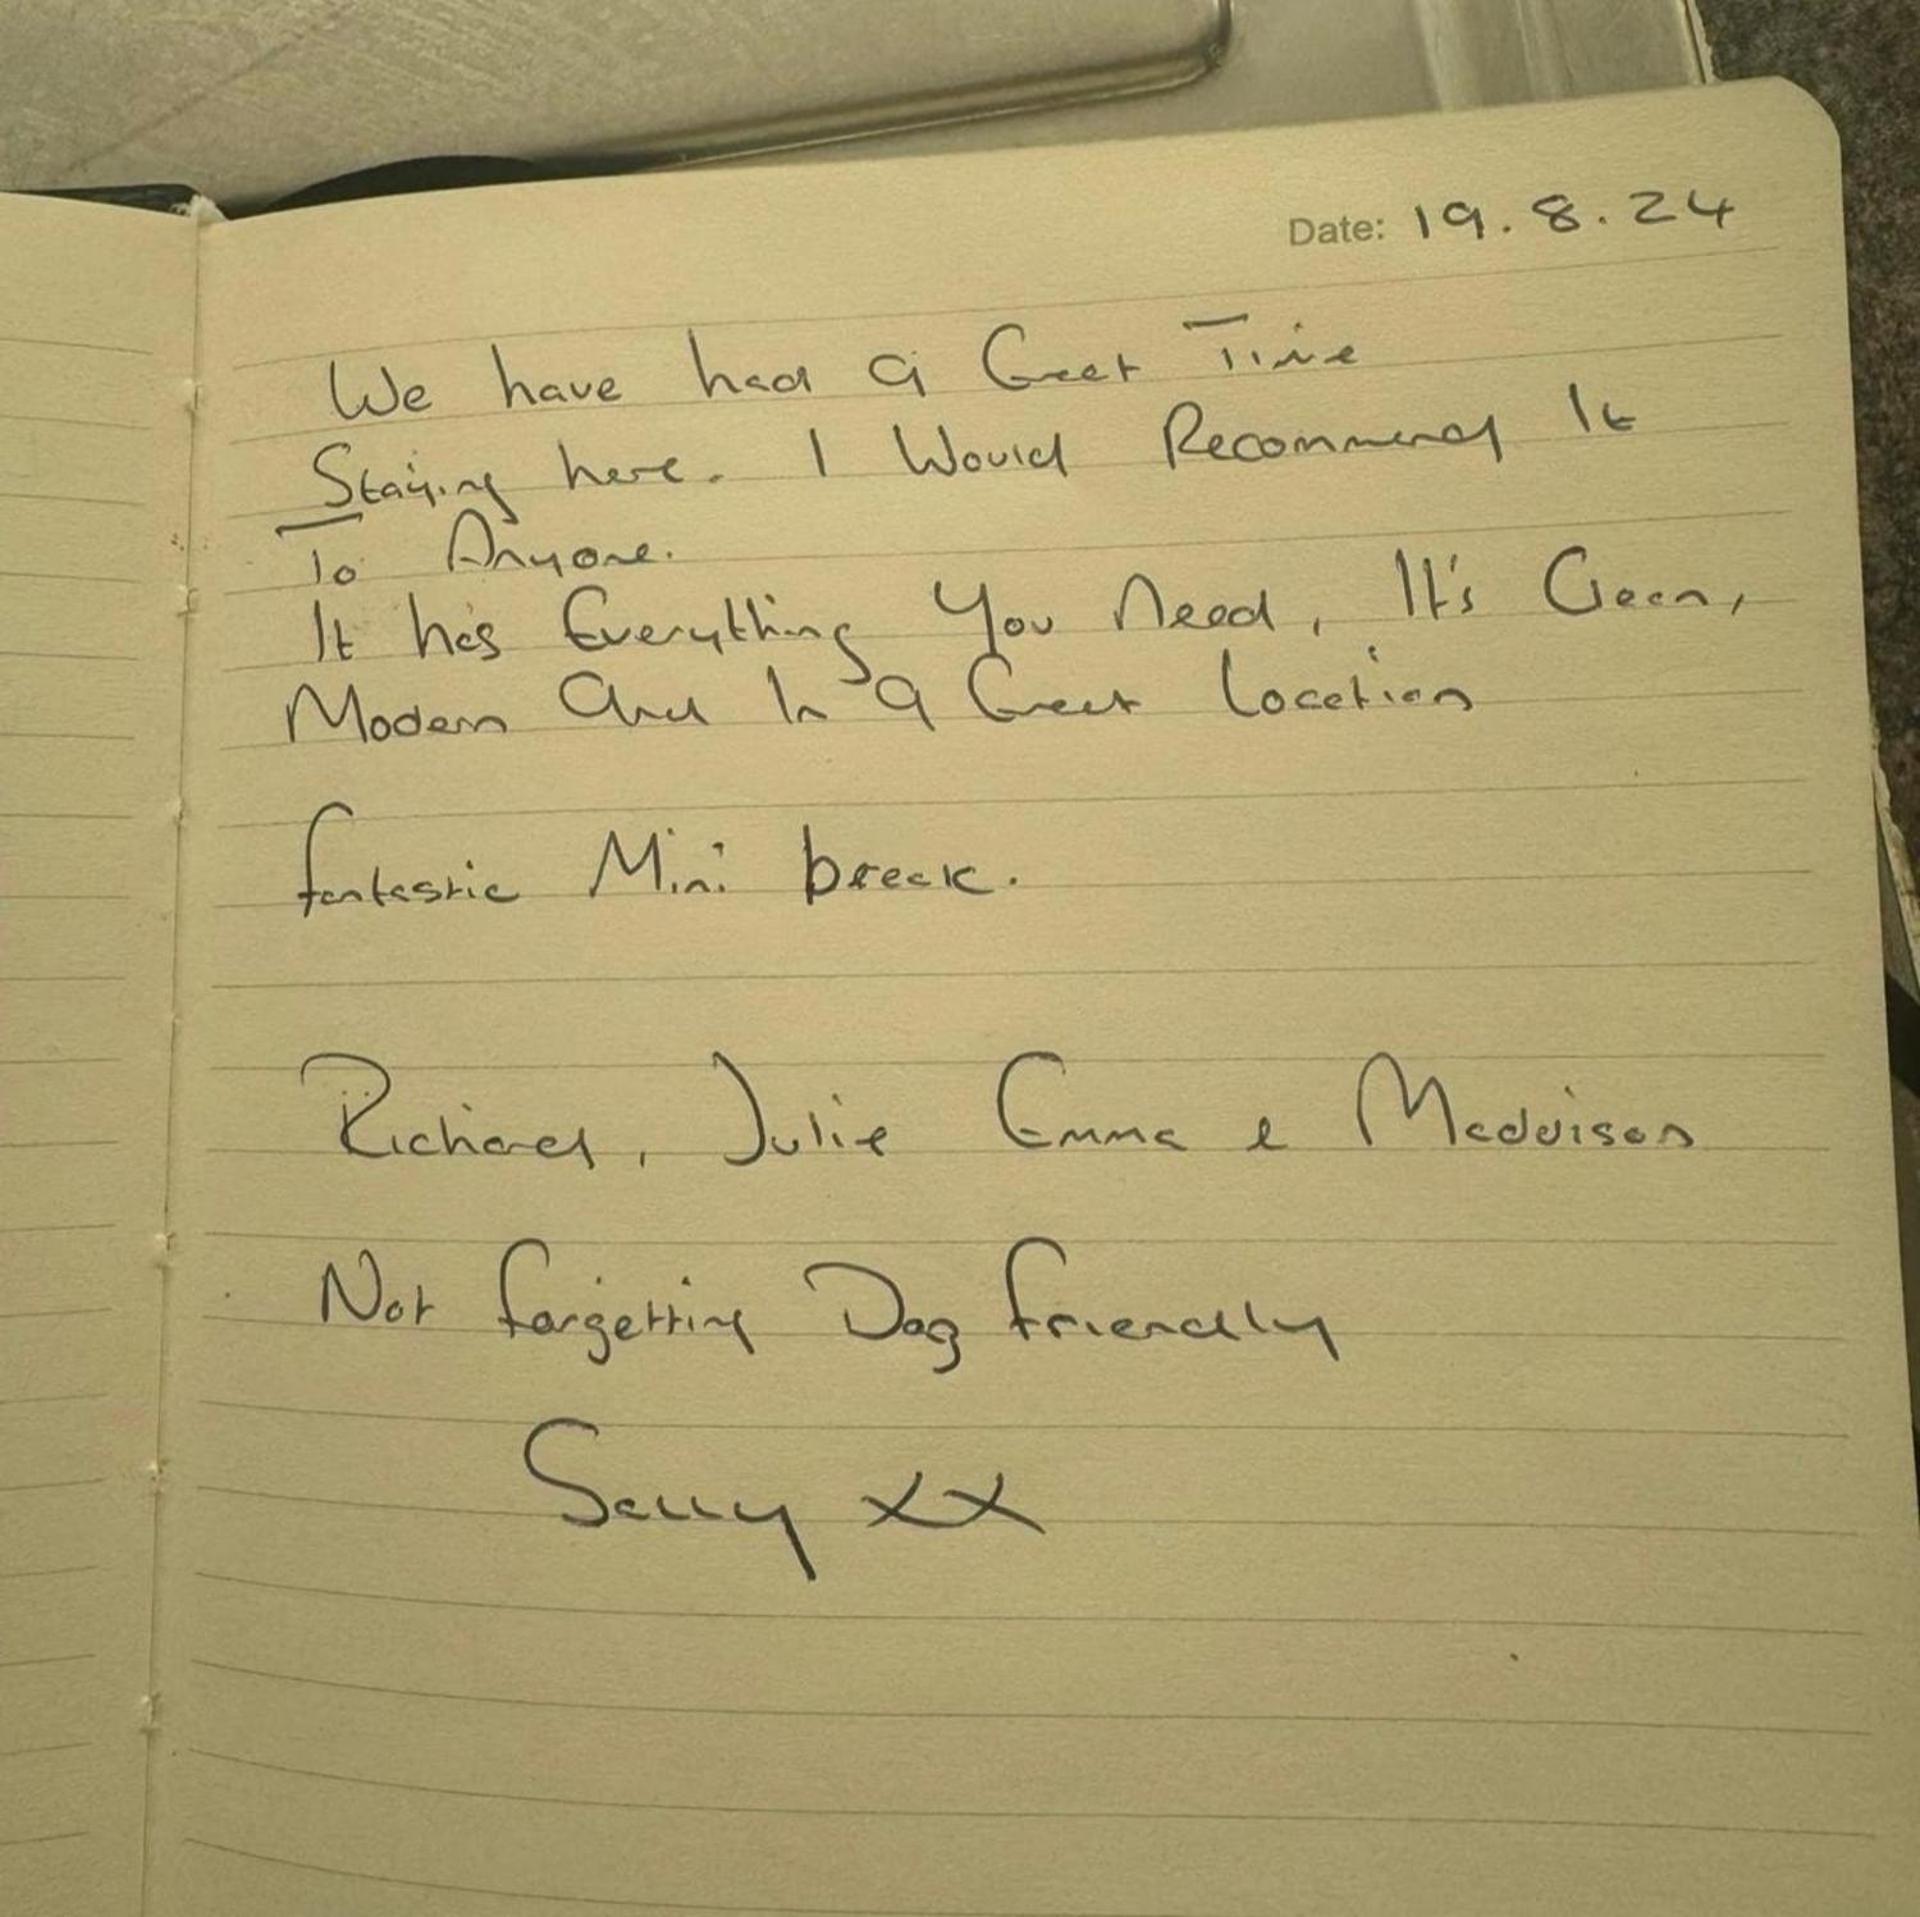 Date: 19.8.24
We have had a Great Time
Staying here. I Would Recommend It
To Anyone.
It has Everything You Need, It's Clean,
Modern And In a Great Location
fantastic Mini break.
Richard, Julie Emma & Maddison
Not forgetting Dog friendly
Sally xx